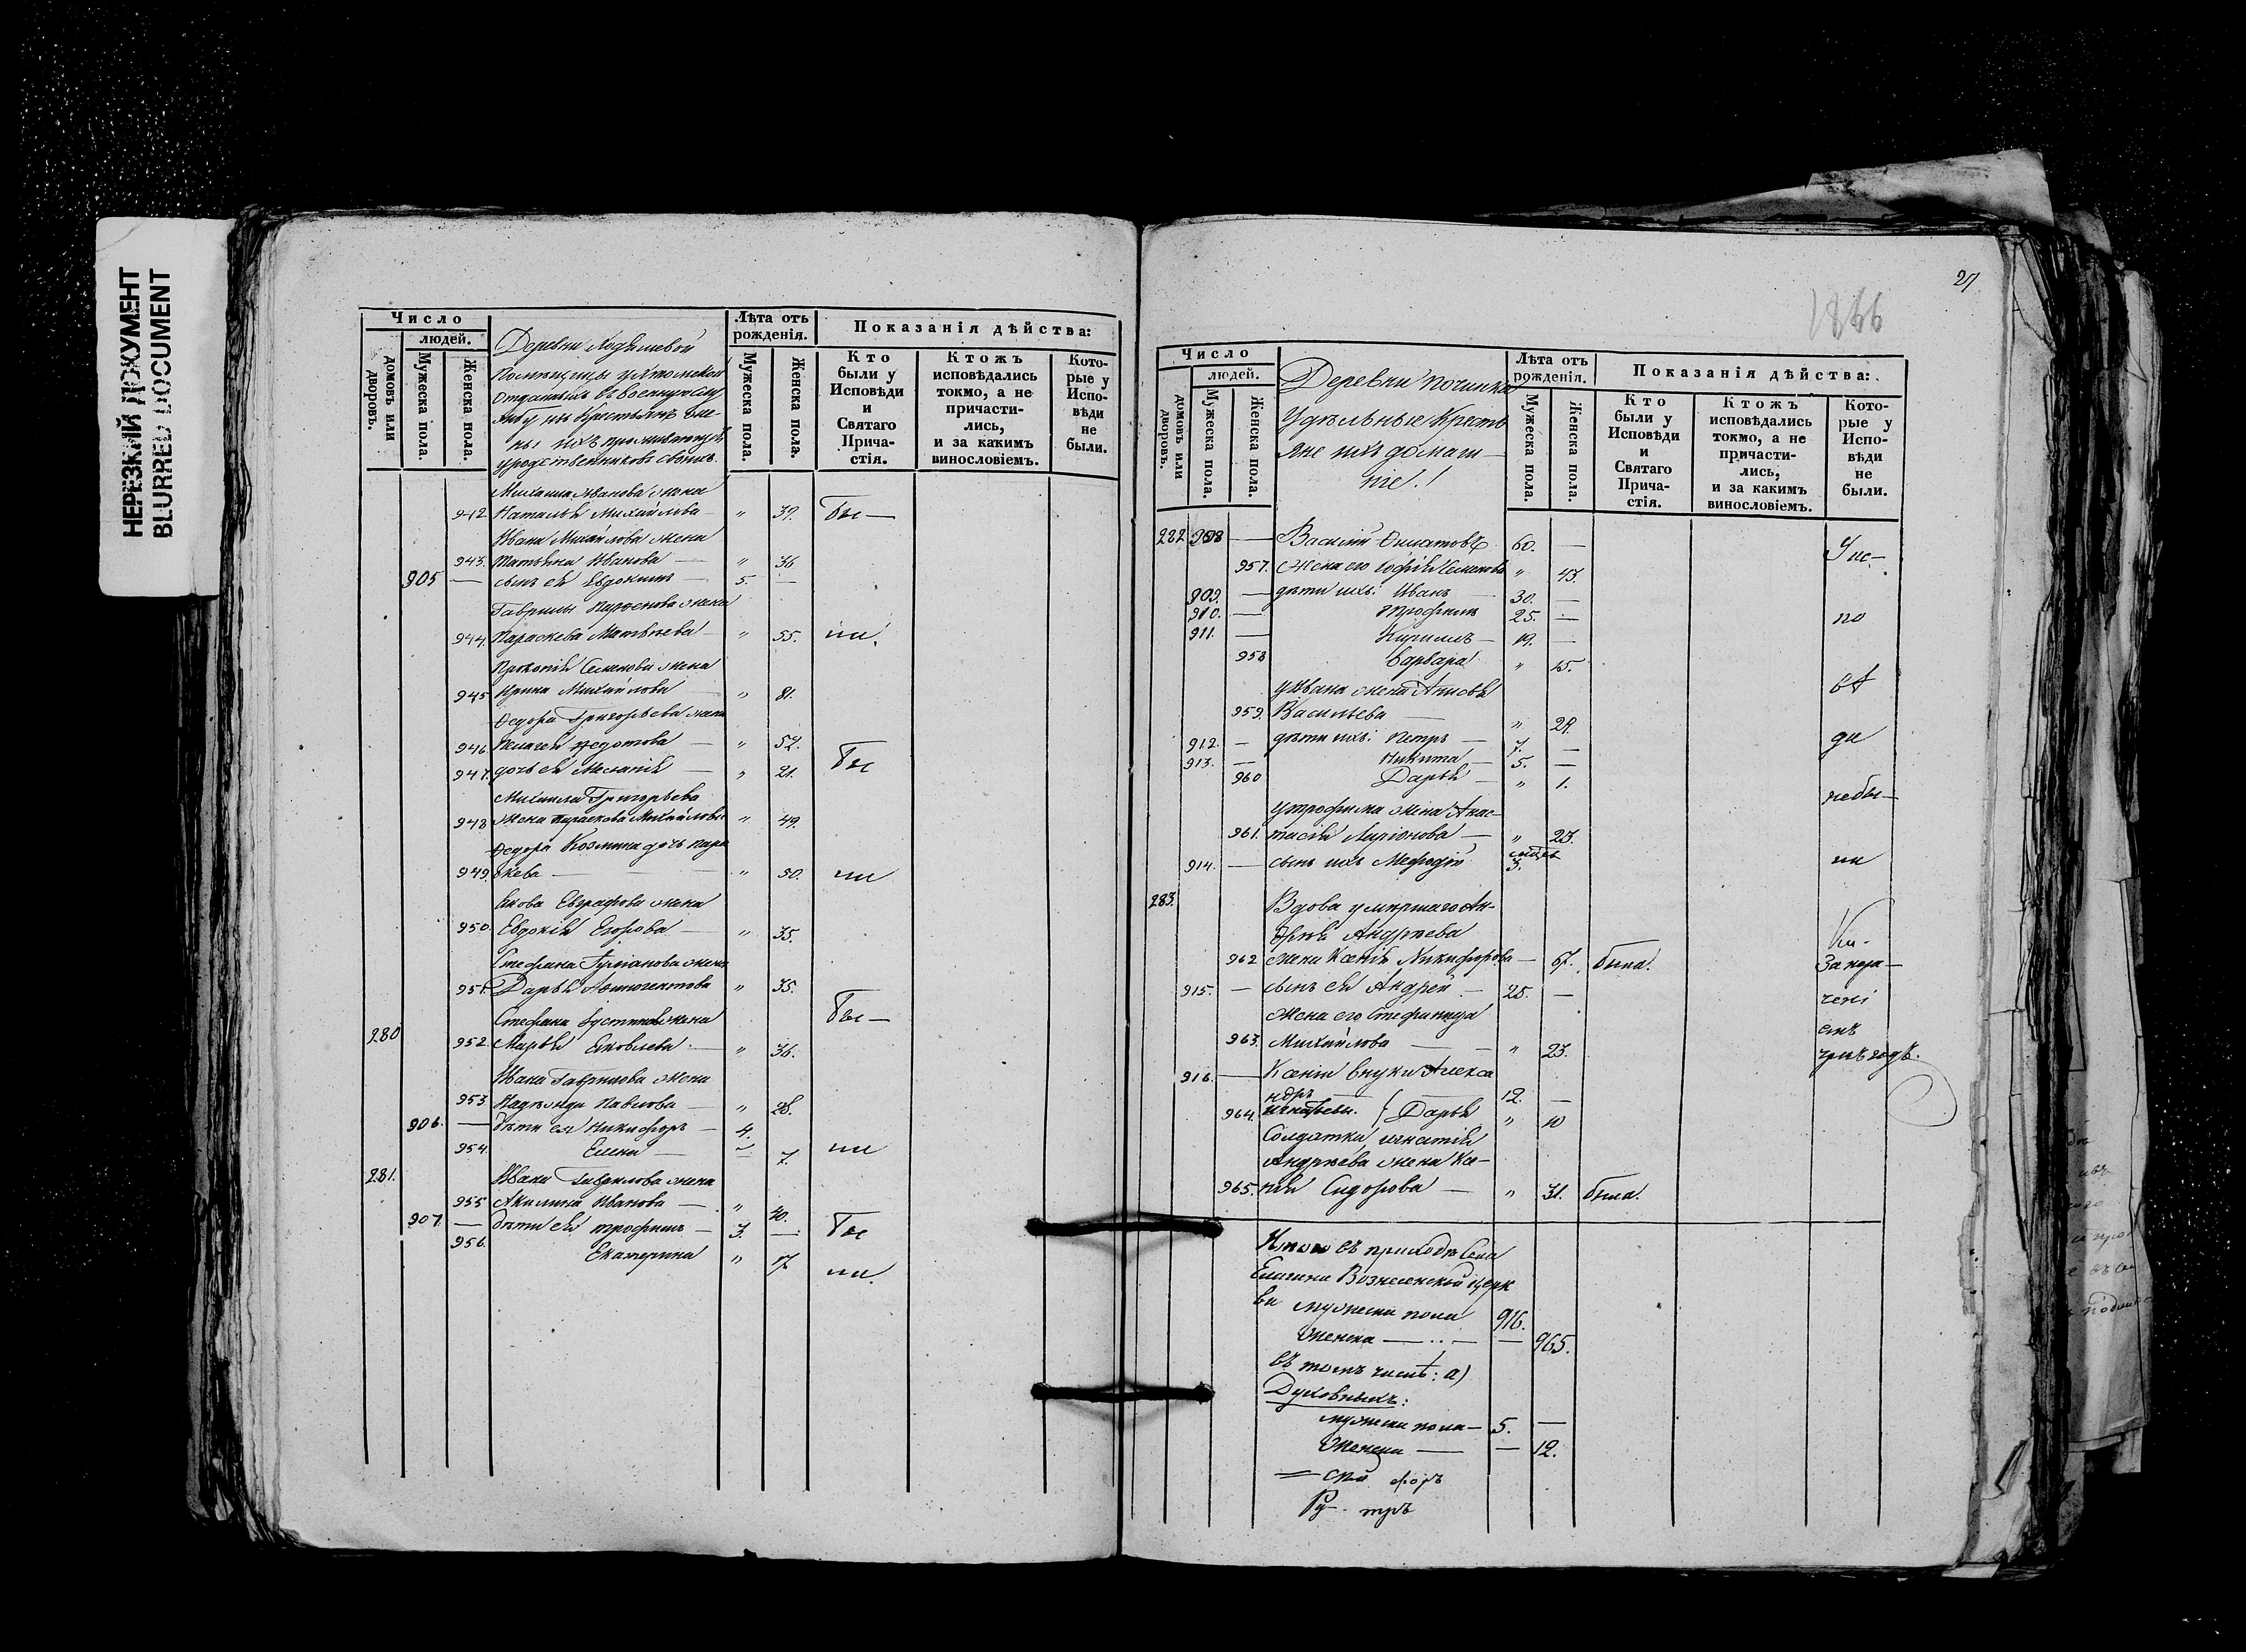 НЕРЕЗКИЙ ДОКУМЕНТ
BLURRED DOCUMENT
Число
людей.
домовъ или дворовъ.
Мужеска пола.
Женска пола.
Деревни
Помѣщицы
отданныхъ въ военную слу
жбу изъ крестьянъ же-
ны ихъ проживающія
у родственниковъ своихъ.
Лѣта отъ рожденія.
Мужеска пола.
Женска пола.
Показанія дѣйства:
Кто были у Исповѣди и Святаго Прича-стія.
Ктожъ исповѣдались токмо, а не причасти-лись, и за какимъ винословіемъ.
Кото-рые у Испо-вѣди не были.
Михаила Иванова жена
942 Наталья Михайлова — " 39. Бы —
Ивана Михайлова жена
943. Татьяна Иванова — " 36
905 — сынъ ея Евдокимъ 5. —
Гаврилы Парфенова жена
944. Параскева Матвѣева — " 55. ли.
Прокопія Семенова жена
945 Ирина Михайлова — " 81.
Ѳедора Григорьева жена
946. Пелагея Ѳедотова — " 52.
947. дочь ея Меланія — " 21. Бы
Михаила Григорьева
948 жена Параскева Михайлова " 49.
Ѳедора Козмина дочь Пара
949. скева — " 50. ли
Якова Евграфова жена
950. Евдокія Егорова — " 35.
Стефана жена
951. Дарья " 35.
Стефана Іустинова жена Бы —
280 952. Марья Яковлева — " 36.
Ивана Гаврилова жена
953. Надежда Павлова — " 28.
906. — дѣти ея Никифоръ — 4.
954. Елена — " 7. ли
281. Ивана Гаврилова жена
955 Акилина Иванова — " 40.
907. — дѣти ея Трофимъ — 3. — Бы
956. Екатерина " 17 ли.
27
1866
Число
людей.
домовъ или дворовъ.
Мужеска пола.
Женска пола.
Деревни Починка
Удѣльные Кресть
яне ихъ домаш—
ніе!
Лѣта отъ рожденія.
Мужеска пола.
Женска пола.
Показанія дѣйства:
Кто были у Исповѣди и Святаго Прича-стія.
Ктожъ исповѣдались токмо, а не причасти-лись, и за какимъ винословіемъ.
Кото-рые у Испо-вѣди не были.
282 908 — Василій 60. — У ис—
957. жена его Софія Семенова " 43.
909. — дѣти ихъ: Иванъ 30. —
910. — Трофимъ 25. — по
911. — Кириллъ — 19. —
958 Варвара " 15.
у Ивана жена вѣ
959. Васильева — " 29.
912. — дѣти ихъ: Петръ — 7. — ди
913. — Никита — 5. —
960 Дарья — " 1. небы—
у Трофима жена Анас-
961. тасія Ларіонова — " 23.
914. — сынъ ихъ Меѳодій 3. ли
283. Вдова умершаго Ан-
дрея Андреева
962 жена Ксенія Никифорова — 67. была. За нера—
915. — сынъ ея Андрей — 25. —
жена его Стефанида
963. Михайлова — " 23.
916. — Ксеніи внуки Алекса
ндръ — 12. —
964. Игнатьевы. { Дарья " 10
Солдатка Игнатія
Андреева жена Ксе-
965. нія Сидорова — " 31. была.
Итого въ приходѣ села
Вознесенской церк
ви мужеска пола 916.
женска — — 965.
въ томъ числѣ: а)
Духовныхъ:
мужеска пола — 5. —
женска — — 12.